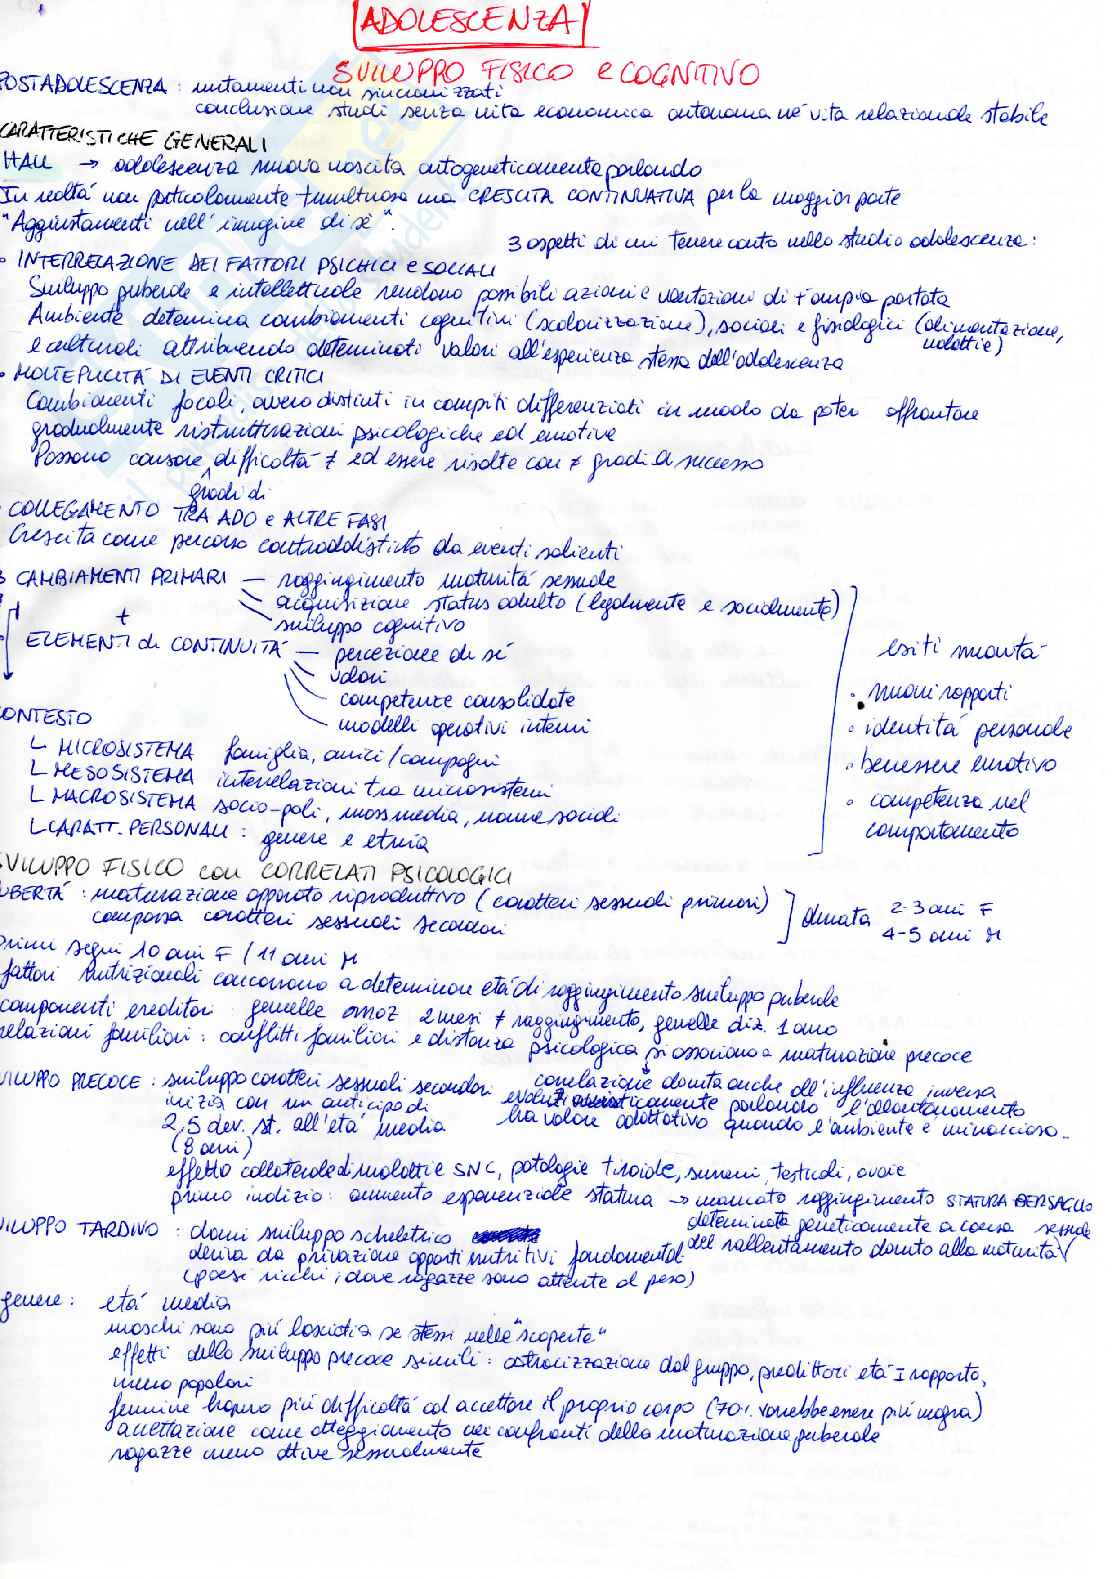 ADOLESCENZA
SVILUPPO FISICO e COGNITIVO
POSTADOLESCENZA : mutamenti non sincronizzati
conclusione studi senza vita economica autonoma né vita relazionale stabile
CARATTERISTICHE GENERALI
HALL → adolescenza nuova nascita ontogeneticamente parlando
In realtá non particolarmente tumultuosa ma CRESCITA CONTINUATIVA per la maggior parte
"Aggiustamenti nell'immagine di sé".
3 aspetti di cui tenere conto nello studio adolescenza:
• INTERRELAZIONE DEI FATTORI PSICHICI e SOCIALI
Sviluppo puberale e intellettuale rendono possibili azioni e variazioni di + ampia portata
Ambiente determina cambiamenti cognitivi (scolarizzazione), sociali e fisiologici (alimentazione, malattie)
e culturali attribuendo determinati valori all'esperienza stessa dell'adolescenza
• MOLTEPLICITÁ DI EVENTI CRITICI
Cambiamenti focali, ovvero distinti in compiti differenziati in modo da poter affrontare
gradualmente ristrutturazioni psicologiche ed emotive
Possono causare gradi di difficoltá ≠ ed essere risolte con ≠ gradi di successo
• COLLEGAMENTO TRA ADO e ALTRE FASI
Crescita come percorso contraddistinto da eventi salienti
3 CAMBIAMENTI PRIMARI — raggiungimento maturitá sessuale
acquisizione status adulto (legalmente e socialmente)
sviluppo cognitivo
+
ELEMENTI di CONTINUITÁ — percezione di sé
valori
competenze consolidate
modelli operativi interni
esiti
• nuovi rapporti
• identitá personale
• benessere emotivo
• competenza nel
comportamento
CONTESTO
MICROSISTEMA famiglia, amici/compagni
MESOSISTEMA interrelazioni tra microsistemi
MACROSISTEMA socio-poli, mass media, norme sociali
CARATT. PERSONALI : genere e etnia
SVILUPPO FISICO con CORRELATI PSICOLOGICI
PUBERTÁ : maturazione apparato riproduttivo (caratteri sessuali primari)
comparsa caratteri sessuali secondari
] durata 2-3 anni F
4-5 anni M
primi segni 10 anni F / 11 anni M
fattori nutrizionali concorrono a determinare etá di raggiungimento sviluppo puberale
componenti ereditari : gemelle omoz 2 mesi ≠ raggiungimento, gemelle diz. 1 anno
relazioni familiari : conflitti familiari e distanza psicologica si associano a maturazione precoce
correlazione dovuta anche all'influenza inversa
evoluzionisticamente parlando l'allontanamento
ha valore adattativo quando l'ambiente é minaccioso.
SVILUPPO PRECOCE : sviluppo caratteri sessuali secondari
inizia con un anticipo di
2,5 dev. st. all'etá media
(8 anni)
effetto collaterale di malattie SNC, patologie tiroide, surreni, testicoli, ovaie
primo indizio : aumento esponenziale statura → mancato raggiungimento STATURA BERSAGLIO
determinata geneticamente a causa
del rallentamento dovuto alla maturitá sessuale
SVILUPPO TARDIVO : danni sviluppo scheletrico
deriva da privazione apporti nutritivi fondamentali
(paesi ricchi, dove ragazze sono attente al peso)
genere : etá media
maschi sono piú lasciati a se stessi nelle "scoperte"
effetti dello sviluppo precoce simili : ostracizzazione dal gruppo, predittori etá I rapporto,
meno popolari
femmine hanno piú difficoltá ad accettare il proprio corpo (70% vorrebbe essere piú magra)
accettazione come atteggiamento nei confronti della maturazione puberale
ragazze meno attive sessualmente